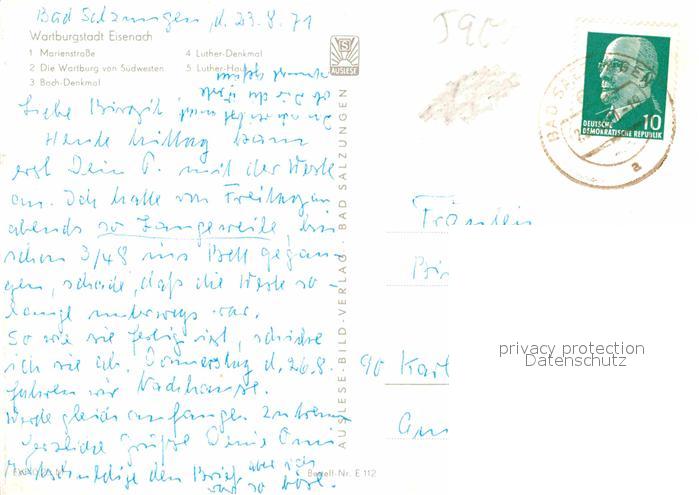 Bad Salzungen, d. 23.8.71
Wartburgstadt Eisenach
1 Marienstraße
2 Die Wartburg von Südwesten
3 Bach-Denkmal
4 Luther-Denkmal
5 Luther-Haus
AUSLESE
Liebe Birgit,
Heute Mittag kam
erst Dein P. mit der Weste
an. Ich hatte von Freitag an
abends so Langeweile, bin
schon 3/48 ins Bett gegan-
gen, schade, daß die Weste so-
lange unterwegs war.
So wie sie fertig ist, schicke
ich sie ab. Donnerstag d. 26.8.
fahren wir Nachhause.
Werde gleich anfangen
Herzliche Grüße Deine Omi
Entschuldige den Brief, aber ich
war so böse.
AUSLESE-BILD-VERLAG · BAD SALZUNGEN
Bestell-Nr. E 112
DEUTSCHE
DEMOKRATISCHE REPUBLIK
10
BAD SALZUNGEN
a
Fräulein
Bir
90 Karl
Am
privacy protection
Datenschutz